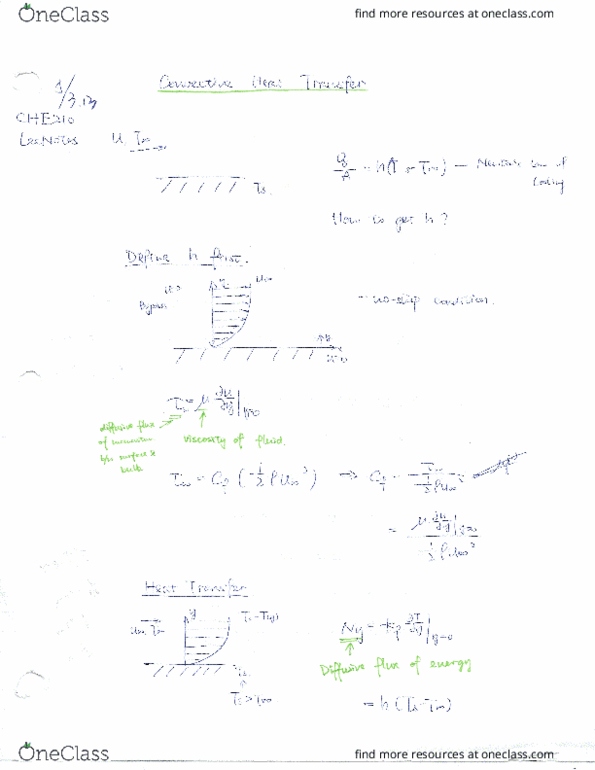 OneClass
find more resources at oneclass.com
Convective Heat Transfer
CHE210
Lec Notes U, T∞
Ts
q/A = h(Ts - T∞) — Newton's law of
Cooling
How to get h?
Define h first.
- no-slip condition.
τw = μ ∂u/∂y |y=0
diffusive flux
of momentum
b/w surface &
bulk
viscosity of fluid.
τw = Cf (½ ρ u∞²) → Cf = τw / ½ρu∞²
= μ ∂u/∂y |y=0 / ½ρu∞²
Heat Transfer
y
u∞, T∞
Ts > T∞
= -kf ∂T/∂y |y=0
Diffusive flux of energy
= h (Ts - T∞)
OneClass
find more resources at oneclass.com